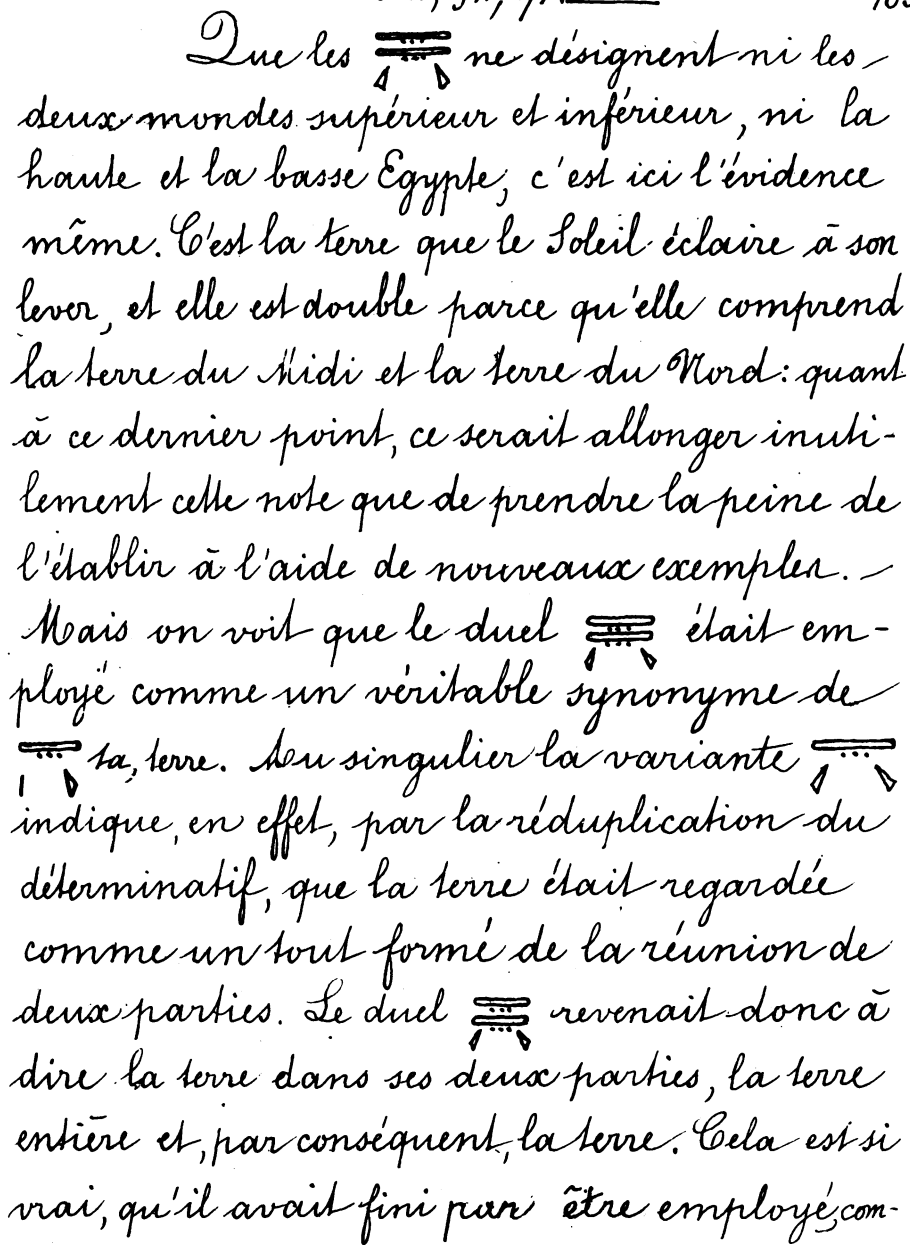 Que les 𓇿𓇿 ne désignent ni les
deux mondes supérieur et inférieur, ni la
haute et la basse Egypte, c'est ici l'évidence
même. C'est la terre que le Soleil éclaire à son
lever, et elle est double parce qu'elle comprend
la terre du Midi et la terre du Nord : quant
à ce dernier point, ce serait allonger inuti-
lement cette note que de prendre la peine de
l'établir à l'aide de nouveaux exemples. —
Mais on voit que le duel 𓇿𓇿 était em-
ployé comme un véritable synonyme de
𓇿 ta, terre. Au singulier la variante 𓇿
indique, en effet, par la réduplication du
déterminatif, que la terre était regardée
comme un tout formé de la réunion de
deux parties. Le duel 𓇿𓇿 revenait donc à
dire la terre dans ses deux parties, la terre
entière et, par conséquent, la terre. Cela est si
vrai, qu'il avait fini par être employé, com-